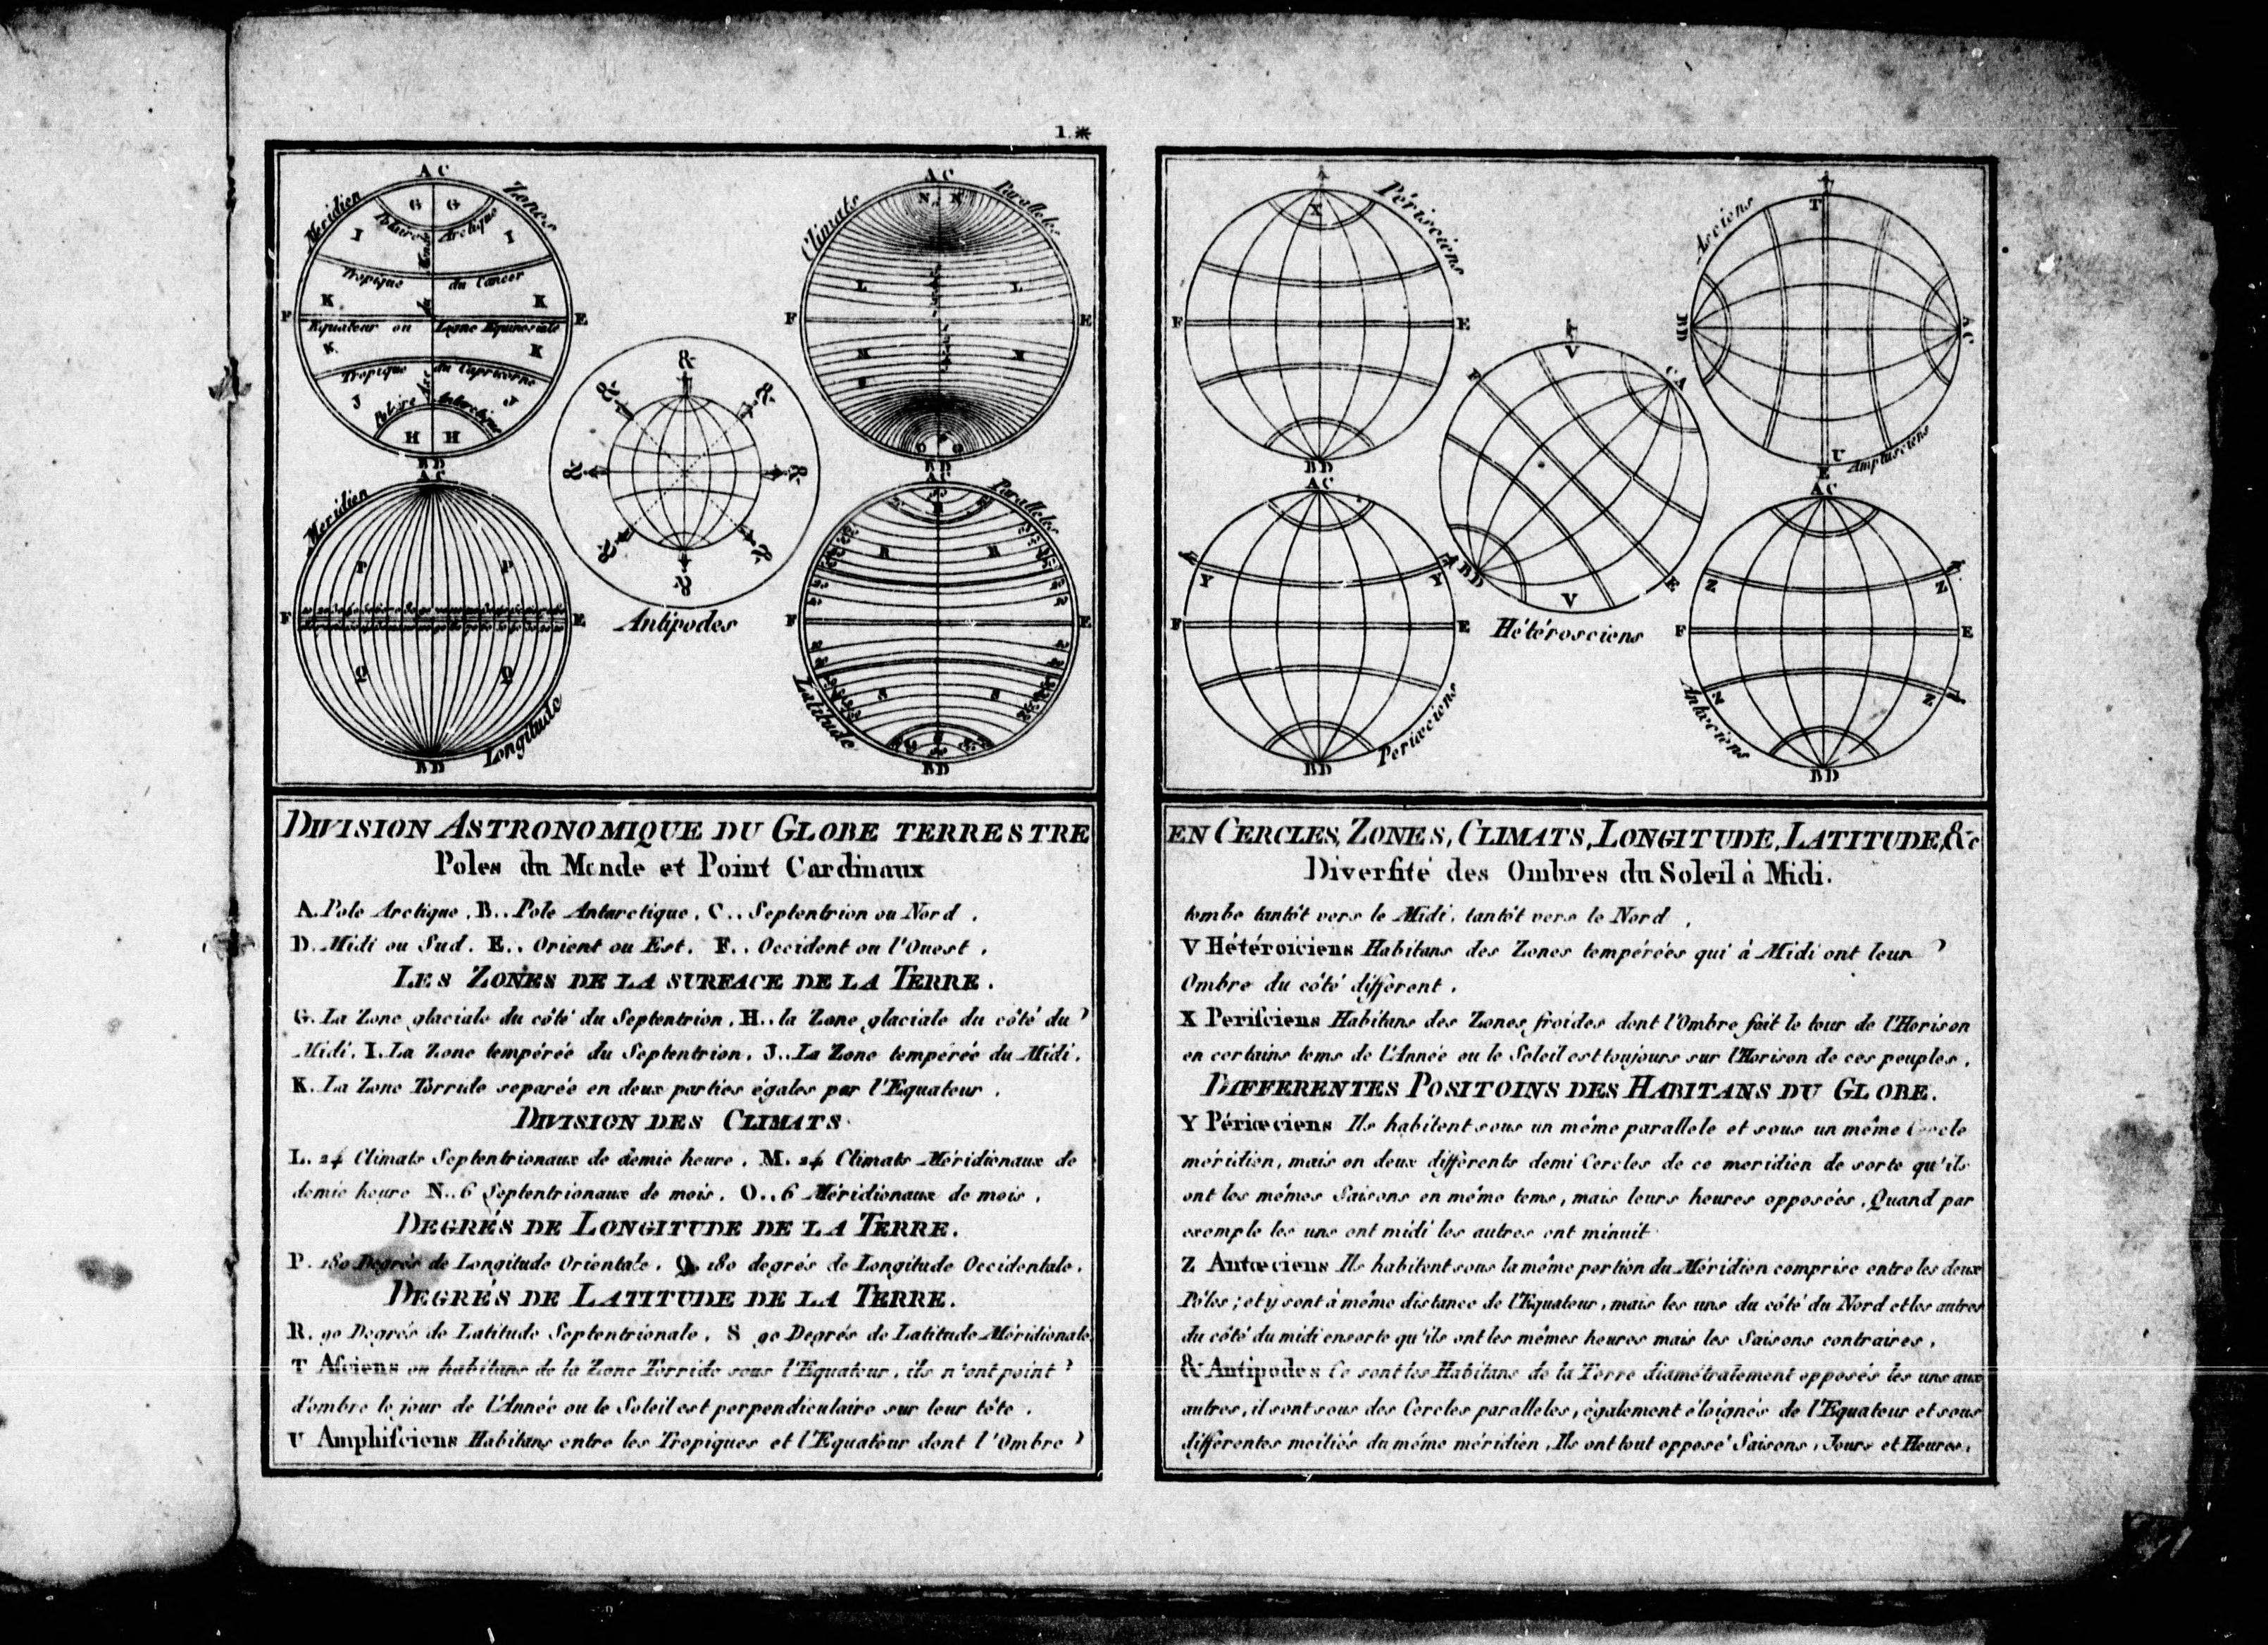 1.*
A C
Meridien
Zones
G G
Polaire Arctique
I I
Tropique du Cancer
K K
F Equateur ou Ligne Equinoxiale E
K K
Tropique du Capricorne
J J
Polaire Antarctique
H H
B D
A C
Climats
Paralleles
N N
L L
F E
M
O O
B D
&
& &
& &
& &
&
Antipodes
A C
Meridien
P P
F E
Q Q
Longitude
B D
A C
Paralleles
R R
F E
S S
Latitude
B D
A
X
Périsciens
F E
B D
T
Asciens
B D
A C
U
E
Amphisciens
T
V
C A
F
E
B D
V
Hétérosciens
A C
Y Y
F E
Periœciens
B D
A C
Z Z
F E
Z Z
Antœciens
B D
DIVISION ASTRONOMIQUE DU GLOBE TERRESTRE
Poles du Monde et Point Cardinaux
A. Pole Arctique. B.. Pole Antarctique. C.. Septentrion ou Nord.
D. Midi ou Sud. E.. Orient ou Est. F.. Occident ou l'Ouest.
LES ZONES DE LA SURFACE DE LA TERRE.
G. La Zone glaciale du côté du Septentrion. H.. la Zone glaciale du côté du
Midi. I. La Zone tempéréé du Septentrion. J.. La Zone tempéréé du Midi.
K. La Zone Torride separée en deux parties égales par l'Equateur.
DIVISION DES CLIMATS.
L. 24 Climats Septentrionaux de demie heure. M. 24 Climats Méridionaux de
demie heure N.. 6 Septentrionaux de mois. O.. 6 Méridionaux de mois.
DEGRÉS DE LONGITUDE DE LA TERRE.
P. 180 Degrés de Longitude Orientale. Q. 180 degrés de Longitude Occidentale.
DEGRÉS DE LATITUDE DE LA TERRE.
R. 90 Degrés de Latitude Septentrionale. S 90 Degrés de Latitude Méridionale.
T Asciens ou habitans de la Zone Torride sous l'Equateur, ils n'ont point
d'ombre le jour de l'Année ou le Soleil est perpendiculaire sur leur tête.
U Amphisciens Habitans entre les Tropiques et l'Equateur dont l'Ombre
EN CERCLES, ZONES, CLIMATS, LONGITUDE, LATITUDE, &c
Diversité des Ombres du Soleil à Midi.
tombe tantôt vers le Midi, tantôt vers le Nord.
V Hétérosciens Habitans des Zones tempéréés qui à Midi ont leur
Ombre du côté différent.
X Perisciens Habitans des Zones froides dont l'Ombre fait le tour de l'Horison
en certains tems de l'Année ou le Soleil est toujours sur l'Horison de ces peuples.
DIFFERENTES POSITOINS DES HABITANS DU GLOBE.
Y Périœciens Ils habitent sous un même parallele et sous un même Cercle
méridien, mais en deux différents demi Cercles de ce meridien de sorte qu'ils
ont les mêmes Saisons en même tems, mais leurs heures opposées. Quand par
exemple les uns ont midi les autres ont minuit
Z Antœciens Ils habitent sous la même portion du Méridien comprise entre les deux
Pôles; et y sont à même distance de l'Equateur, mais les uns du côté du Nord et les autres
du côté du midi ensorte qu'ils ont les mêmes heures mais les Saisons contraires.
& Antipodes Ce sont les Habitans de la Terre diamétralement opposés les uns aux
autres, il sont sous des Cercles paralleles, également éloignés de l'Equateur et sous
différentes moitiés du même méridien. Ils ont tout opposé Saisons, Jours et Heures.